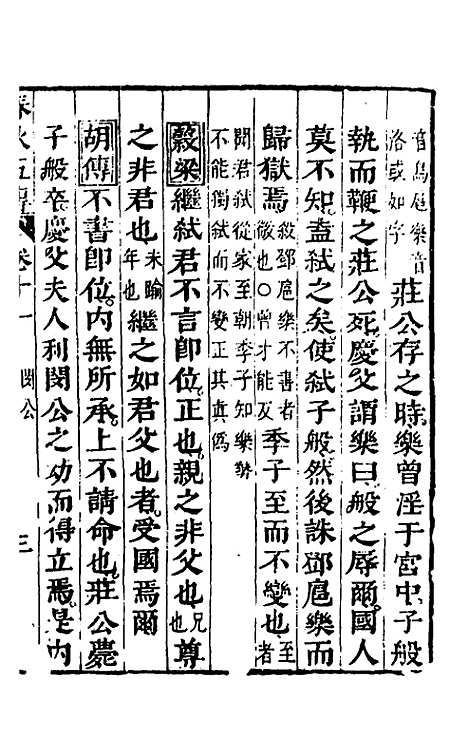 音烏扈樂音
洛或如字
莊公存之時樂曾淫于宮中子般
執而鞭之莊公死慶父謂樂曰般之辱爾國人
莫不知盍弑之矣使弑子般然後誅鄧扈樂而
歸獄焉
殺鄧扈樂不書者
微也○曾才能反
季子至而不變也
至者
聞君弑從家至朝季子知樂勢
不能獨弑而不變正其眞僞
穀梁繼弑君不言卽位正也親之非父也
兄也
尊
之非君也
未踰年也
繼之如君父也者受國焉爾
胡傳不書卽位内無所承上不請命也莊公薨
子般卒慶父夫人利閔公之幼而得立焉是内
春秋五傳 卷十一 閔公 三